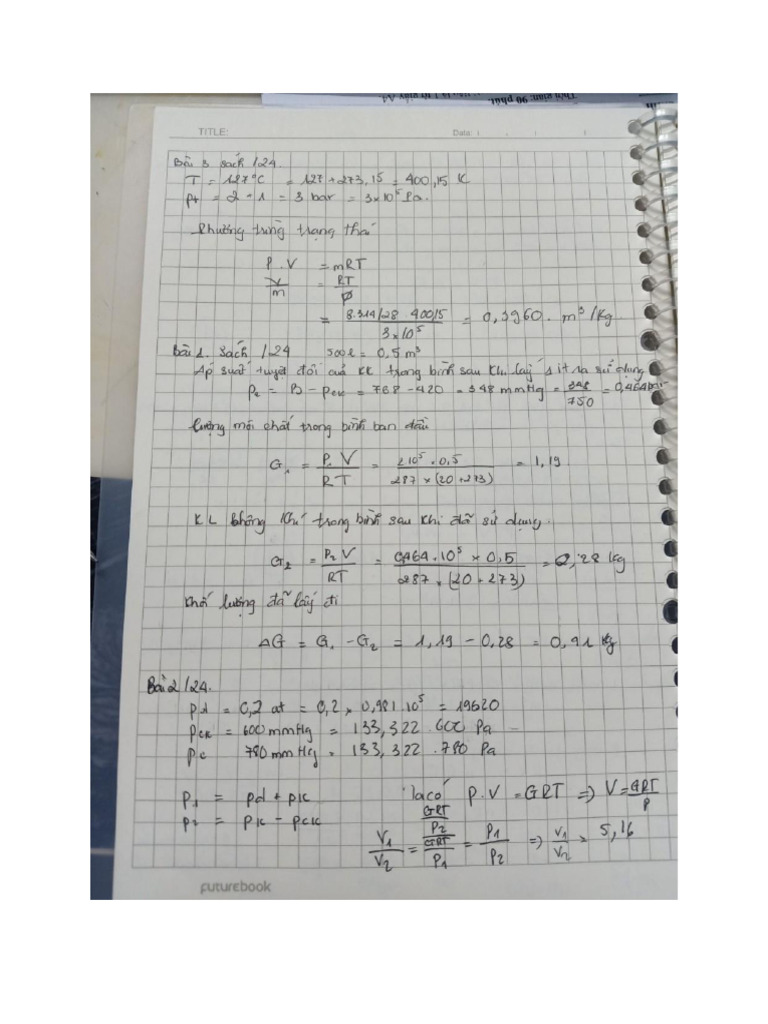 Thời gian: 90 phút.
TITLE:
Date:
Bài 3 sách /24.
T = 127°C = 127 + 273,15 = 400,15 K
pt = 2 - 1 = 3 bar = 3×10⁵ Pa.
Phương trình trạng thái
P.V = mRT
V/m = RT/p
= 8.314/28 40015 / 3×10⁵ = 0,3960. m³/kg
Bài 1. Sách /24 500l = 0,5 m³
Áp suất tuyệt đối của KK trong bình sau khi lấy ra sử dụng
p₂ = B - pck = 768 - 420 = 348 mmHg = 348/750 = 0,464 bar
Lượng môi chất trong bình ban đầu
G₁ = P₁V/RT = 2 10⁵.0,5 / 287×(20+273) = 1,19
KL không khí trong bình sau khi đã sử dụng.
G₂ = P₂V/RT = 0,464.10⁵ × 0,5 / 287×(20+273) = 0,28 kg
Khối lượng đã lấy đi
ΔG = G₁ - G₂ = 1,19 - 0,28 = 0,91 kg
Bài 2 /24.
pd = 0,2 at = 0,2 × 0,981.10⁵ = 19620
pck = 600 mmHg = 133,322.600 Pa
pk 780 mmHg = 133,322.780 Pa
P₁ = pd + pk
P₂ = pk - pck
Ta có P.V = GRT => V = GRT/P
V₁/V₂ = GRT/P₂ / GRT/P₁ = P₁/P₂ => V₁/V₂ = 5,16
FUTUREBOOK